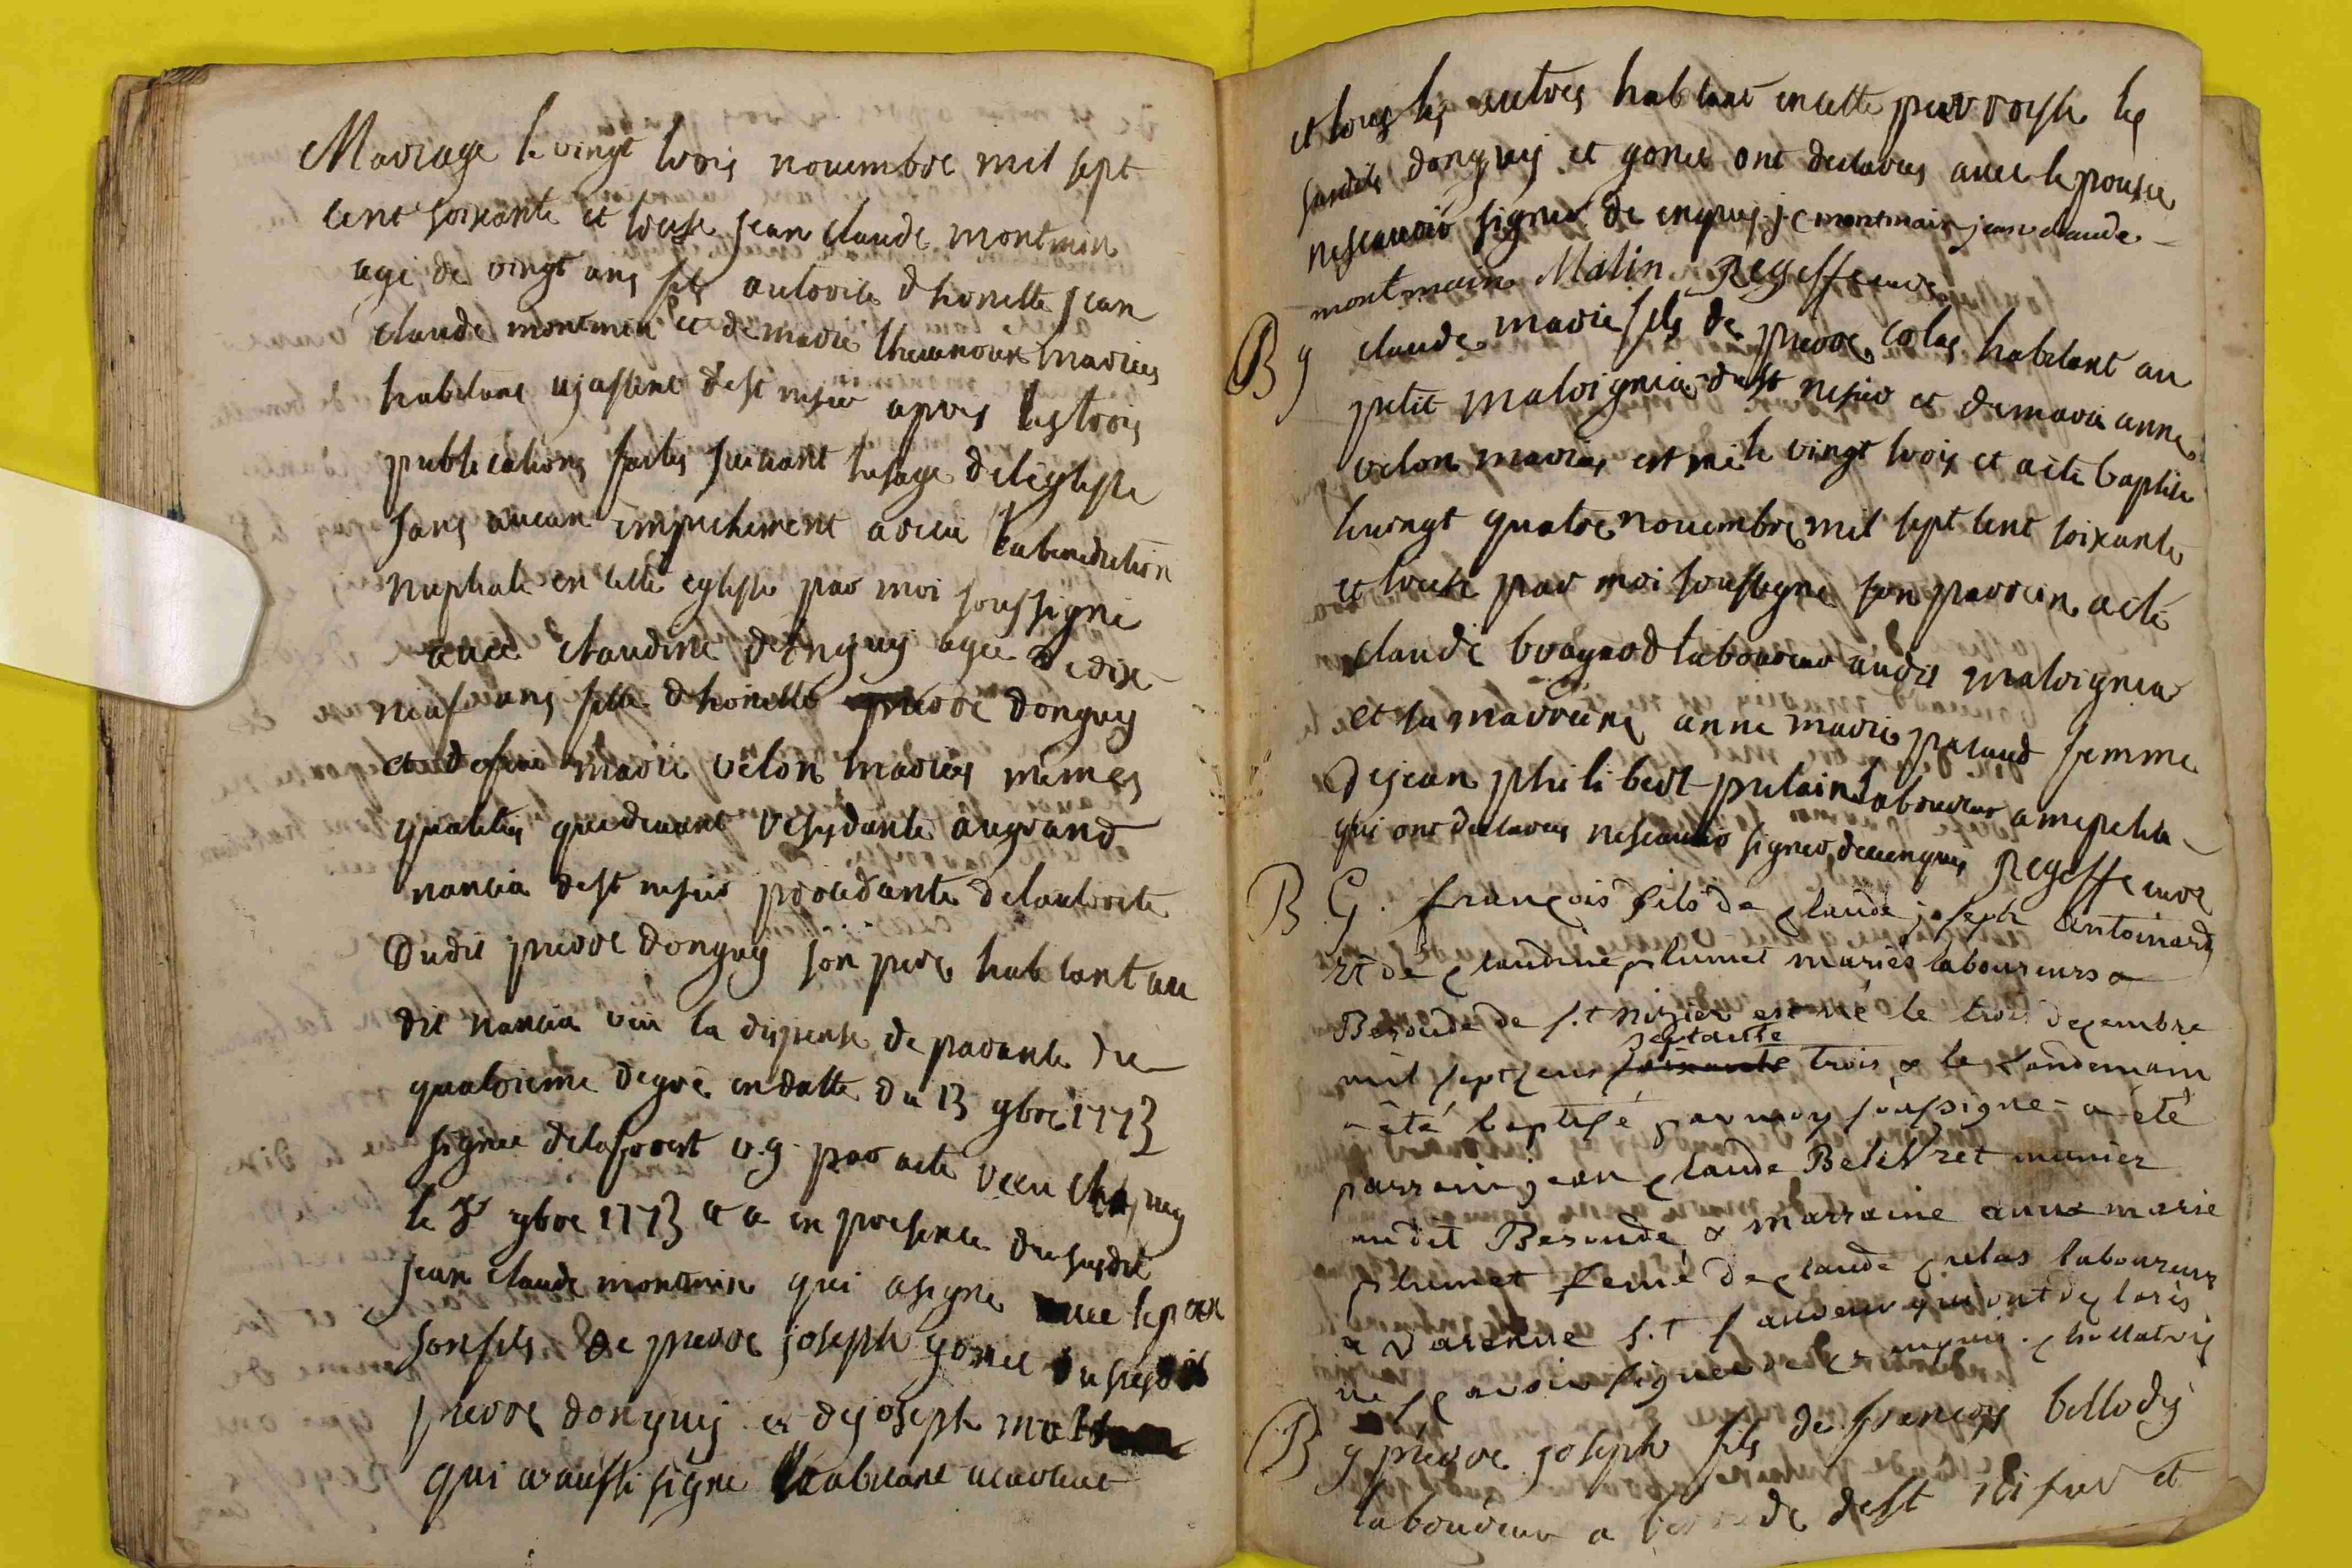 Mariage le vingt trois novembre mil sept
cent soixante et treise jean claude montmin
agé de vingt ans fils autorise d honette jean
claude montmin et de marie thevenoux maries
habitans dest nisier apres les trois
publications faites suivant lusage de leglise
sans aucun empechement a recu la benediction
nuptiale en cette eglise par moi soussigné
avec claudine donguy agee de dix
neuf ans fille d honette pierre donguy
et de marie velon maries mêmes
qualites que devant residante au grand
nancia dest nisier procedante de lautorite
dudit pierre donguy son pere habitant au
dit nancia veu la dispense de parante du
quatrieme degré en datte du 13 9bre 1773
signee delaforest v.g. par acte
le 9bre 1773 et a en presence du susdit
jean claude montmin qui a signe avec lepoux
son fils de pierre joseph gonet du susdit
pierre donguy et de joseph
qui a aussi signe habitant
et tous les autres habitant en cette parroisse les
susdits donguy et gonet ont declares avec lepouse
ne scavoir signer de enquis j c montmain jean claude
montmain Matin Regeffe cure
B g claude marie fils de pierre colas habitant au
petit malvignia dest nisier et de marie anne
velon maries est né le vingt trois et a ete baptise
le vingt quatre novembre mil sept cent soixante
et treise par moi soussigne son parrein a eté
claude laboureur audit malvignia
et sa marreine anne marie paland femme
de jean philibert putain laboureur a mepilia
qui ont declares ne scavoir signer de ce enquis Regeffe cure
B G. françois fils de claude joseph antoinard
et de claudine plumet mariés laboureurs a
Besoude de s.t nizier est né le trois decembre
septante
mil sept cens soixante trois & le landemain
a été baptisé par moy soussigne a été
parrain jean claude Belivret munier
au dit Besoude & marraine anne marie
plumet feme de claude culas laboureur
a varenne s.t sauveur qui ont declarés
ne scavoir signer de ce enquis.
B g pierre joseph fils de francois bellody
laboureur a dest nisier et